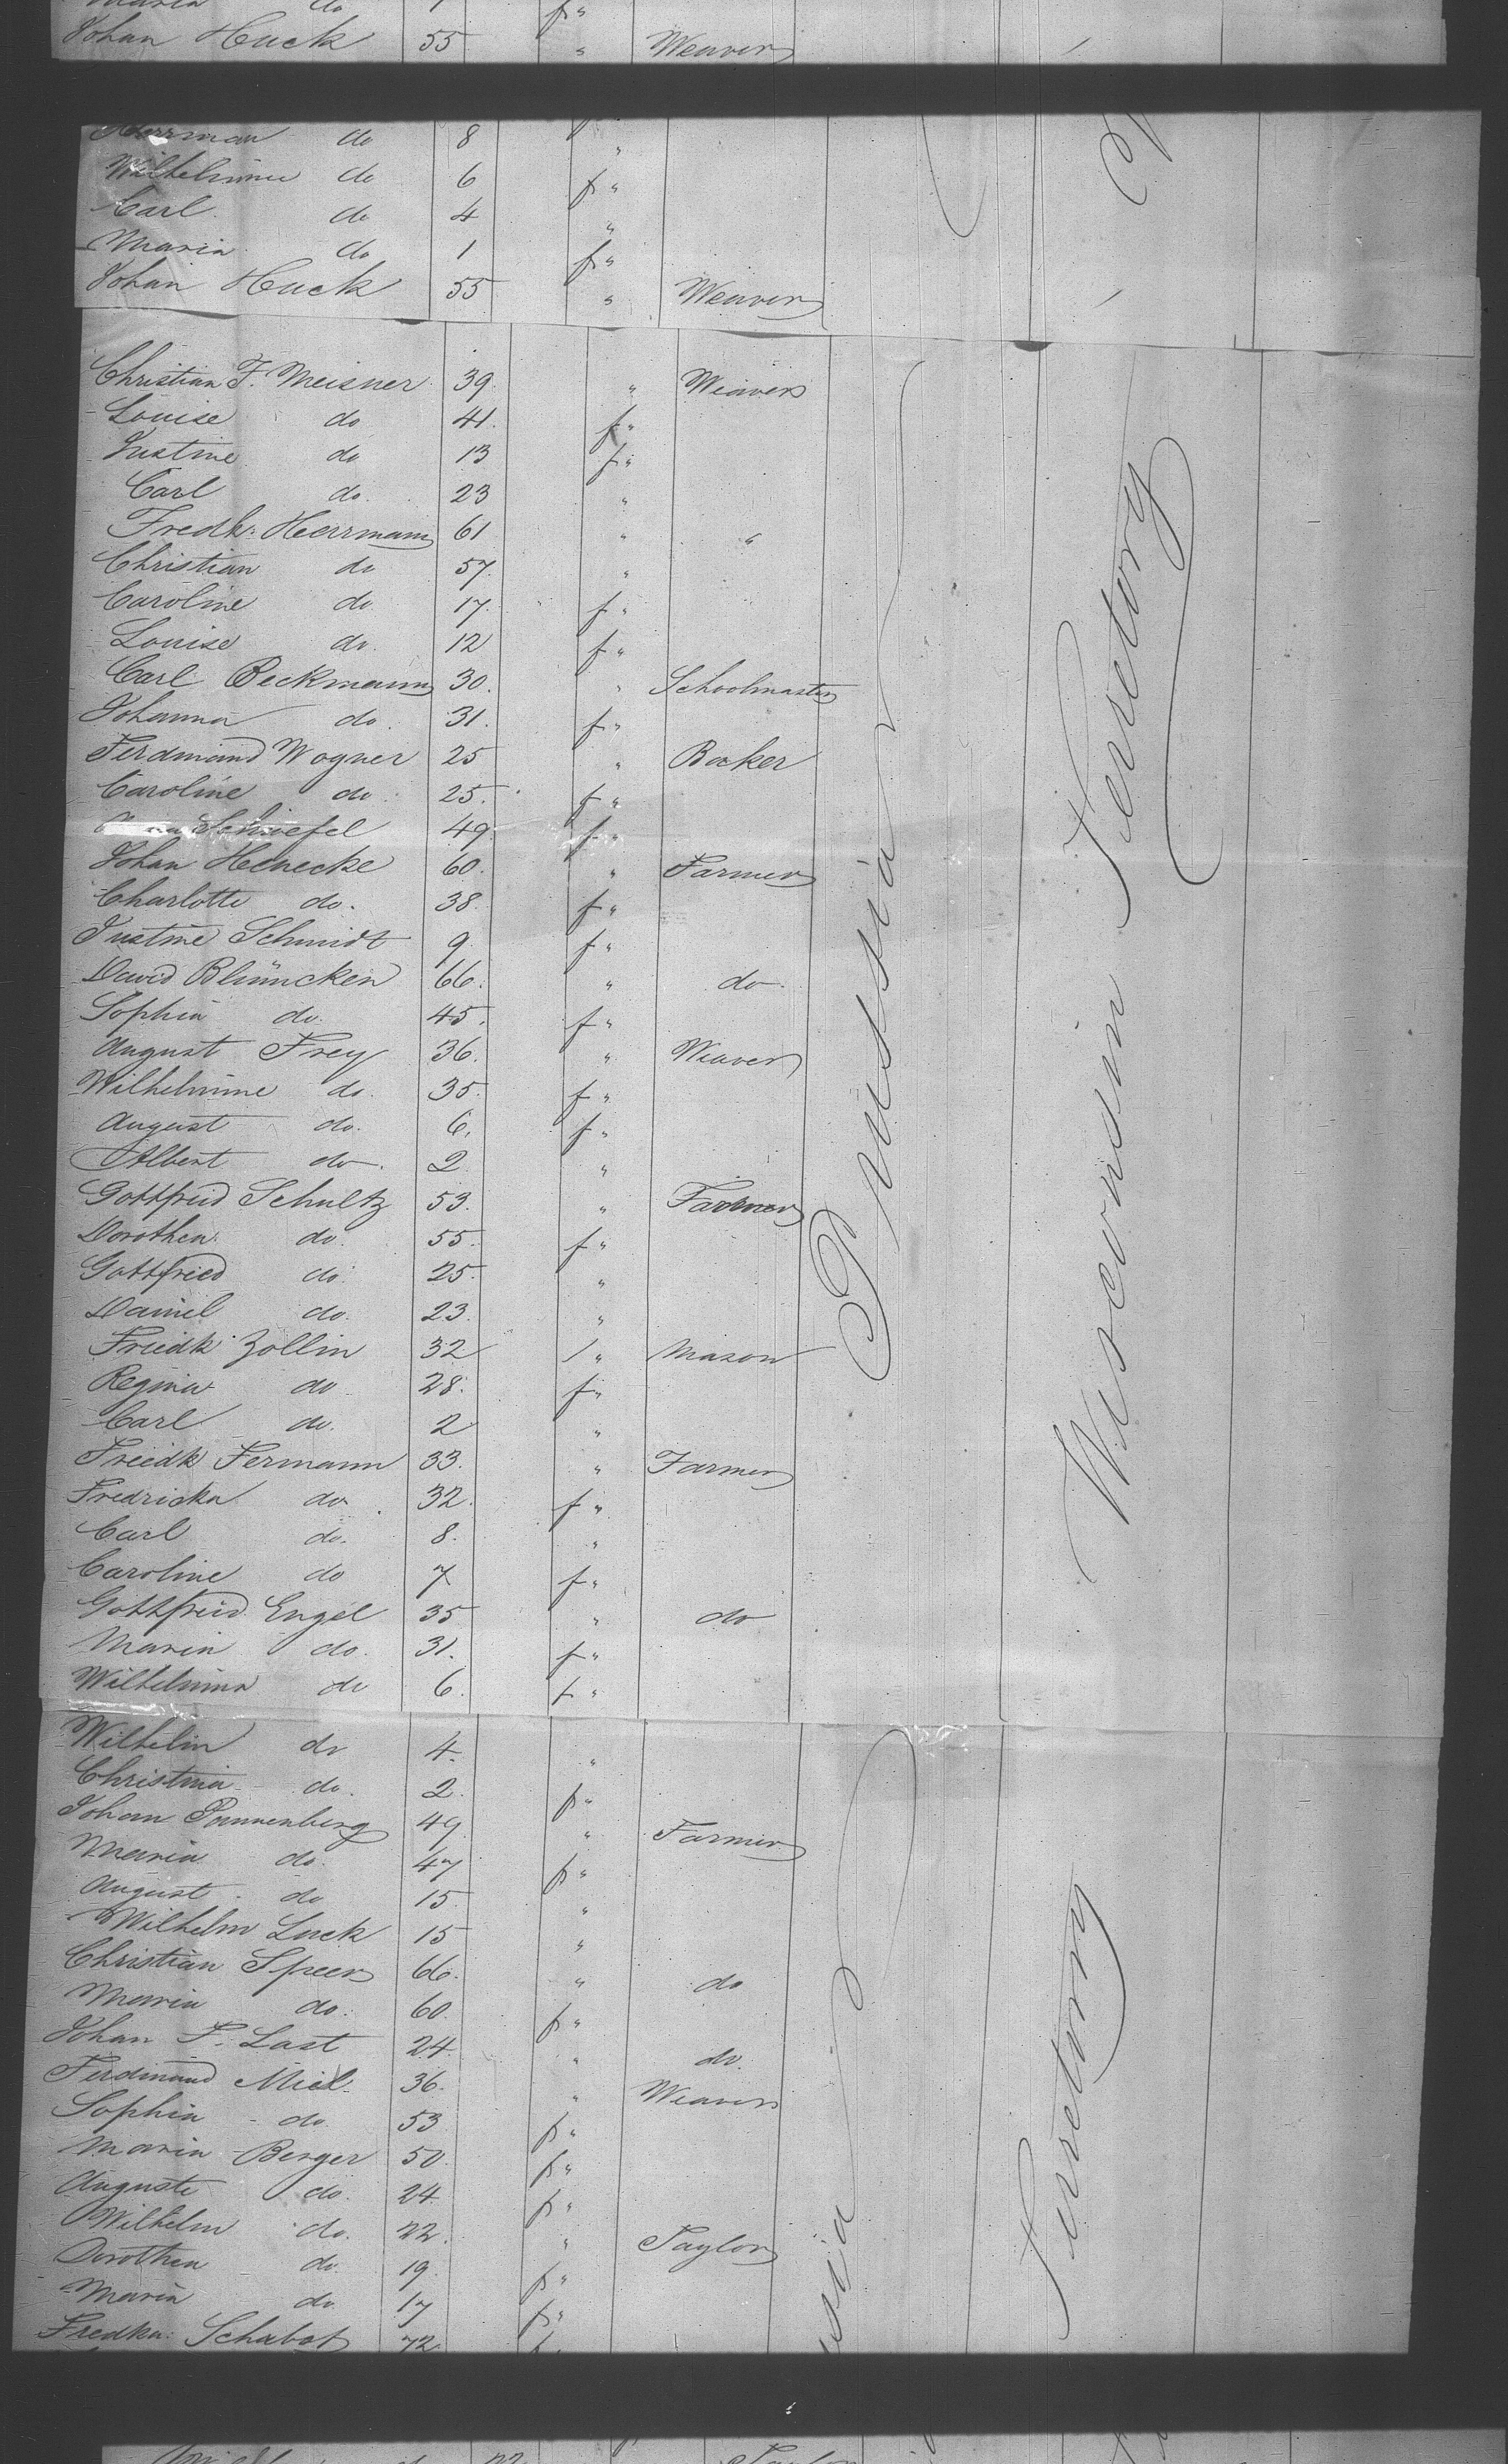 Maria do 1 f "
Johan Huck 55 " Weaver
Herrman do 8 "
Wilhelmine do 6 f "
Carl do 4 "
Maria do 1 f "
Johan Huck 55 " Weaver
Christian F. Meisner 39 " Weaver
Louise do 41 f "
Justine do 13 f "
Carl do 23 "
Fredk. Herrmann 61 " "
Christian do 57 "
Caroline do 17 f "
Louise do 12 f "
Carl Beckmann 30 " Schoolmaster
Johanna do 31 f "
Ferdinand Wagner 25 " Baker
Caroline do 25 f "
Schiefel 49 f "
Johan Henecke 60 " Farmer
Charlotte do 38 f "
Justine Schmidt 9 f "
David Blümcken 66 " do
Sophia do 45 f "
August Frey 36 " Weaver
Wilhelmine do 35 f "
August do 6 f "
Albert do 2 "
Gottfried Schultz 53 " Farmer
Dorothea do 55 f "
Gottfried do 25 "
Daniel do 23 "
Friedk Zollin 32 / " Mason
Regina do 28 f "
Carl do 2 "
Friedk Fermann 33 " Farmer
Fredricka do 32 f "
Carl do 8 "
Caroline do 7 f "
Gottfried Engel 35 " do
Maria do 31 f "
Wilhelmina do 6 f "
Wilhelm do 4 "
Christina do 2 f "
Johan Pannenberg 49 " Farmer
Maria do 47 f "
August do 15 "
Wilhelm Luck 15 "
Christian Speer 66 " do
Maria do 60 f "
Johan F. Last 24 " do
Ferdinand Miel 36 " Weaver
Sophia do 53 f "
Maria Berger 50 f "
Auguste do 24 f "
Wilhelm do 22 " Taylor
Dorothea do 19 f "
Maria do 17 f "
Fredka Schabot 72 f
Prussia
Wisconsin Teretory
Teretory
22 Taylor